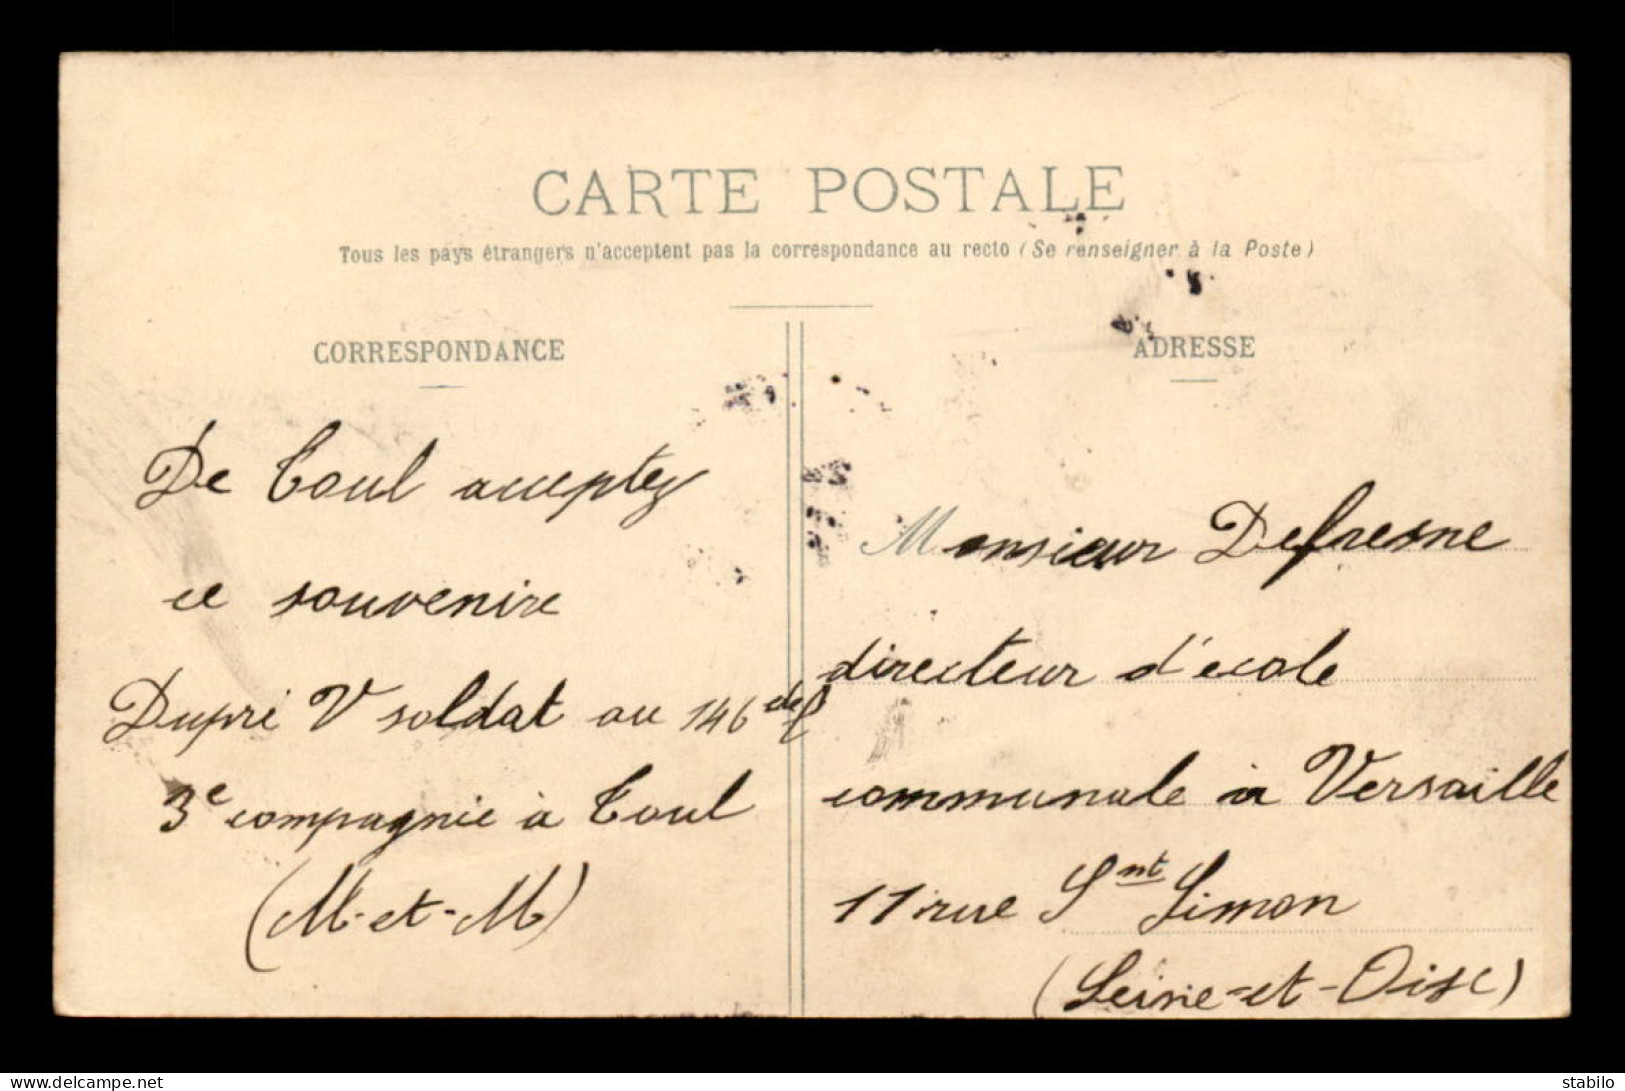 CARTE POSTALE
Tous les pays étrangers n'acceptent pas la correspondance au recto (Se renseigner à la Poste)
CORRESPONDANCE
De Toul acceptez
ce souvenire
Dupré V soldat au 146e de
3e compagnie à Toul
(M-et-M)
ADRESSE
Monsieur Defresne
directeur d'école
communale à Versaille
11 rue Snt Simon
(Seine-et-Oise)
delcampe.net
stabilo